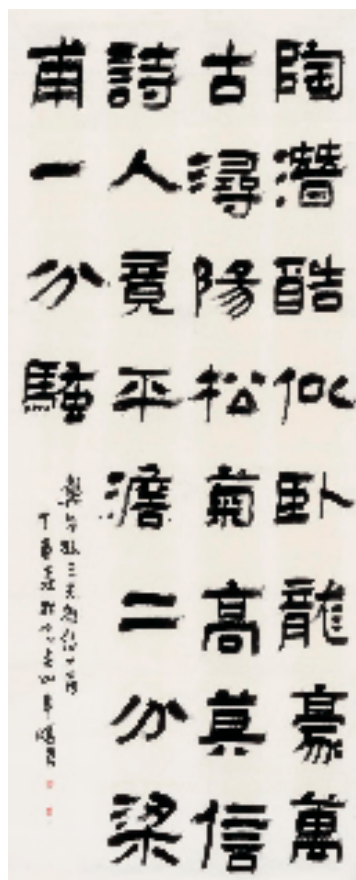 陶潛酷似卧龍豪萬
古潯陽松菊高莫信
詩人竟平澹二分梁
甫一分騷